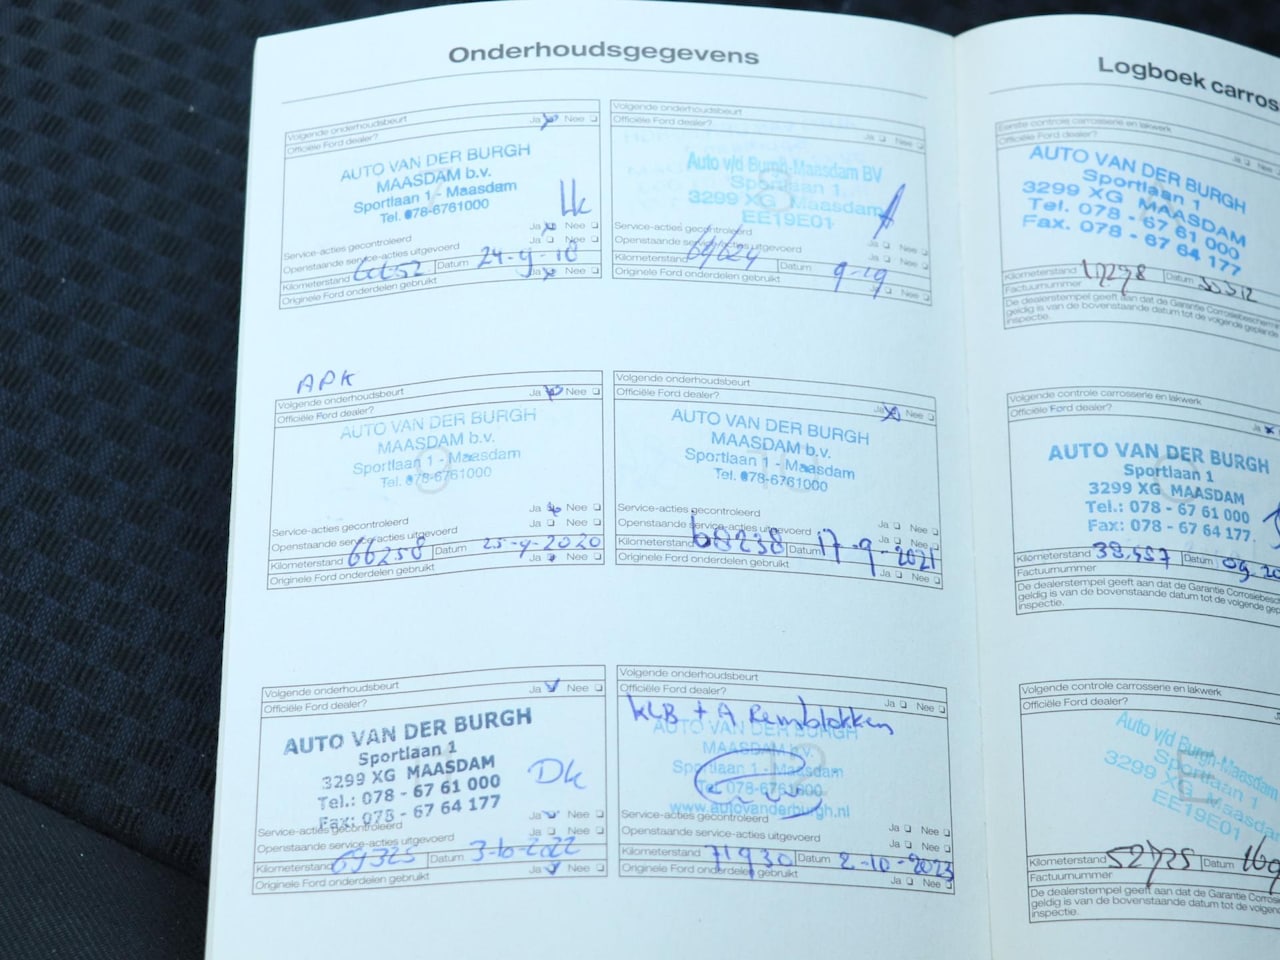 Onderhoudsgegevens
Volgende onderhoudsbeurt
Officiële Ford dealer? Ja Nee
AUTO VAN DER BURGH
MAASDAM b.v.
Sportlaan 1 - Maasdam
Tel. 078-6761000
Service-acties gecontroleerd Ja Nee
Openstaande service-acties uitgevoerd Ja Nee
Kilometerstand Datum
Originele Ford onderdelen gebruikt Ja Nee
Volgende onderhoudsbeurt
Officiële Ford dealer? Ja Nee
Auto v/d Burgh-Maasdam BV
Sportlaan 1
3299 XG Maasdam
EE19E01
Service-acties gecontroleerd Ja Nee
Openstaande service-acties uitgevoerd Ja Nee
Kilometerstand Datum 9-19
Originele Ford onderdelen gebruikt Ja Nee
APK
Volgende onderhoudsbeurt
Officiële Ford dealer? Ja Nee
AUTO VAN DER BURGH
MAASDAM b.v.
Sportlaan 1 - Maasdam
Tel. 078-6761000
Service-acties gecontroleerd Ja Nee
Openstaande service-acties uitgevoerd Ja Nee
Kilometerstand 66258 Datum 25-4-2020
Originele Ford onderdelen gebruikt Ja Nee
Volgende onderhoudsbeurt
Officiële Ford dealer? Ja Nee
AUTO VAN DER BURGH
MAASDAM b.v.
Sportlaan 1 - Maasdam
Tel. 078-6761000
Service-acties gecontroleerd Ja Nee
Openstaande service-acties uitgevoerd Ja Nee
Kilometerstand 68238 Datum 17-9-2021
Originele Ford onderdelen gebruikt Ja Nee
Volgende onderhoudsbeurt
Officiële Ford dealer? Ja Nee
AUTO VAN DER BURGH
Sportlaan 1
3299 XG MAASDAM
Tel.: 078 - 67 61 000
Fax: 078 - 67 64 177
Dk
Service-acties gecontroleerd Ja Nee
Openstaande service-acties uitgevoerd Ja Nee
Kilometerstand 69325 Datum 3-10-2022
Originele Ford onderdelen gebruikt Ja Nee
Volgende onderhoudsbeurt
Officiële Ford dealer? Ja Nee
KLB + A Remblokken
AUTO VAN DER BURGH
MAASDAM b.v.
Sportlaan 1 - Maasdam
Tel. 078-6761000
www.autovanderburgh.nl
Service-acties gecontroleerd Ja Nee
Openstaande service-acties uitgevoerd Ja Nee
Kilometerstand 71930 Datum 2-10-2023
Originele Ford onderdelen gebruikt Ja Nee
Logboek carros
Eerste controle carrosserie en lakwerk
Officiële Ford dealer? Ja Nee
AUTO VAN DER BURGH
Sportlaan 1
3299 XG MAASDAM
Tel. 078 - 67 61 000
Fax. 078 - 67 64 177
Kilometerstand Datum
Factuurnummer
De dealerstempel geeft aan dat de Garantie Corrosiebescherm
geldig is van de bovenstaande datum tot de volgende geplande
inspectie.
Volgende controle carrosserie en lakwerk
Officiële Ford dealer? Ja
AUTO VAN DER BURGH
Sportlaan 1
3299 XG MAASDAM
Tel.: 078 - 67 61 000
Fax: 078 - 67 64 177.
Kilometerstand 38.557 Datum
Factuurnummer
De dealerstempel geeft aan dat de Garantie Corrosiebesc
geldig is van de bovenstaande datum tot de volgende gep
inspectie.
Volgende controle carrosserie en lakwerk
Officiële Ford dealer?
Auto v/d Burgh-Maasdam
Sportlaan 1
3299 XG Maasdam
EE19E01
Kilometerstand 52725 Datum
Factuurnummer
De dealerstempel geeft aan dat de Garantie Corrosiebes
geldig is van de bovenstaande datum tot de volgende
inspectie.